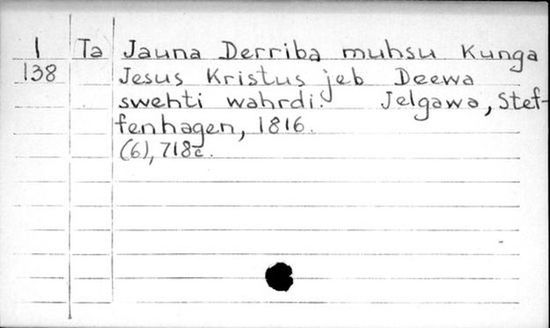 1 Ta Jauna Derriba muhsu Kunga
138 Jesus Kristus jeb Deewa
swehti wahrdi. Jelgawa, Stef-
fenhagen, 1816.
(6), 718c.